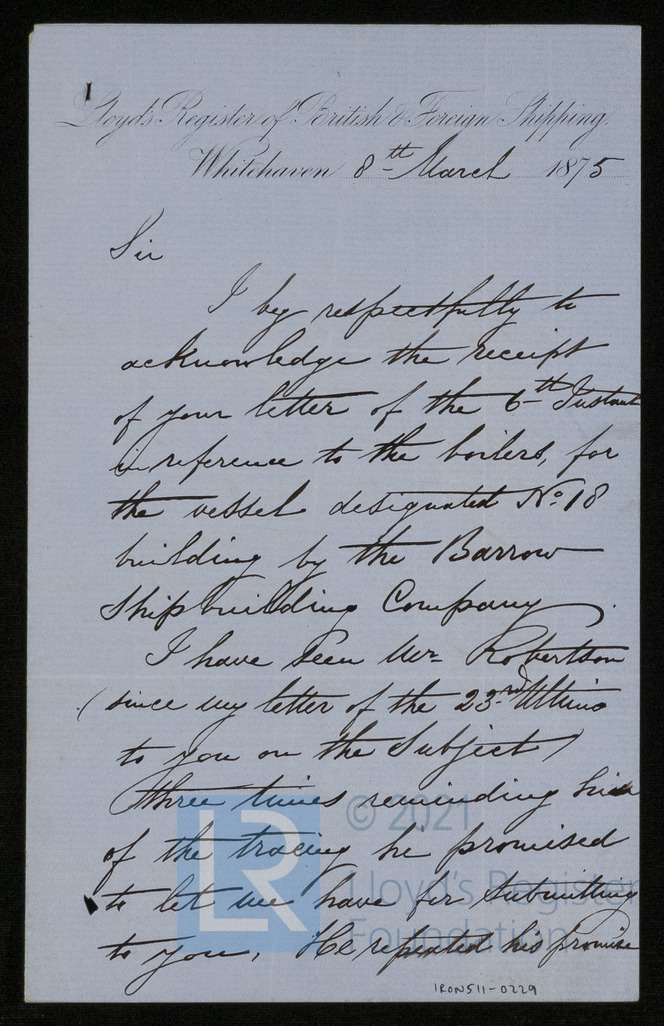 Lloyd's Register of British & Foreign Shipping,
Whitehaven 8th March 1875
Sir
I beg respectfully to
acknowledge the receipt
of your letter of the 6th Instant
in reference to the boilers, for
the vessel designated No. 18
building by the Barrow
Shipbuilding Company.
I have seen Mr Robertson
(since my letter of the 23rd Ultimo
to you on the Subject)
three times reminding him
of the tracing he promised
to let me have for submitting
to you. He repeated his promise
LR
© 2021
Lloyd's Register
Foundation
IRON511-0229